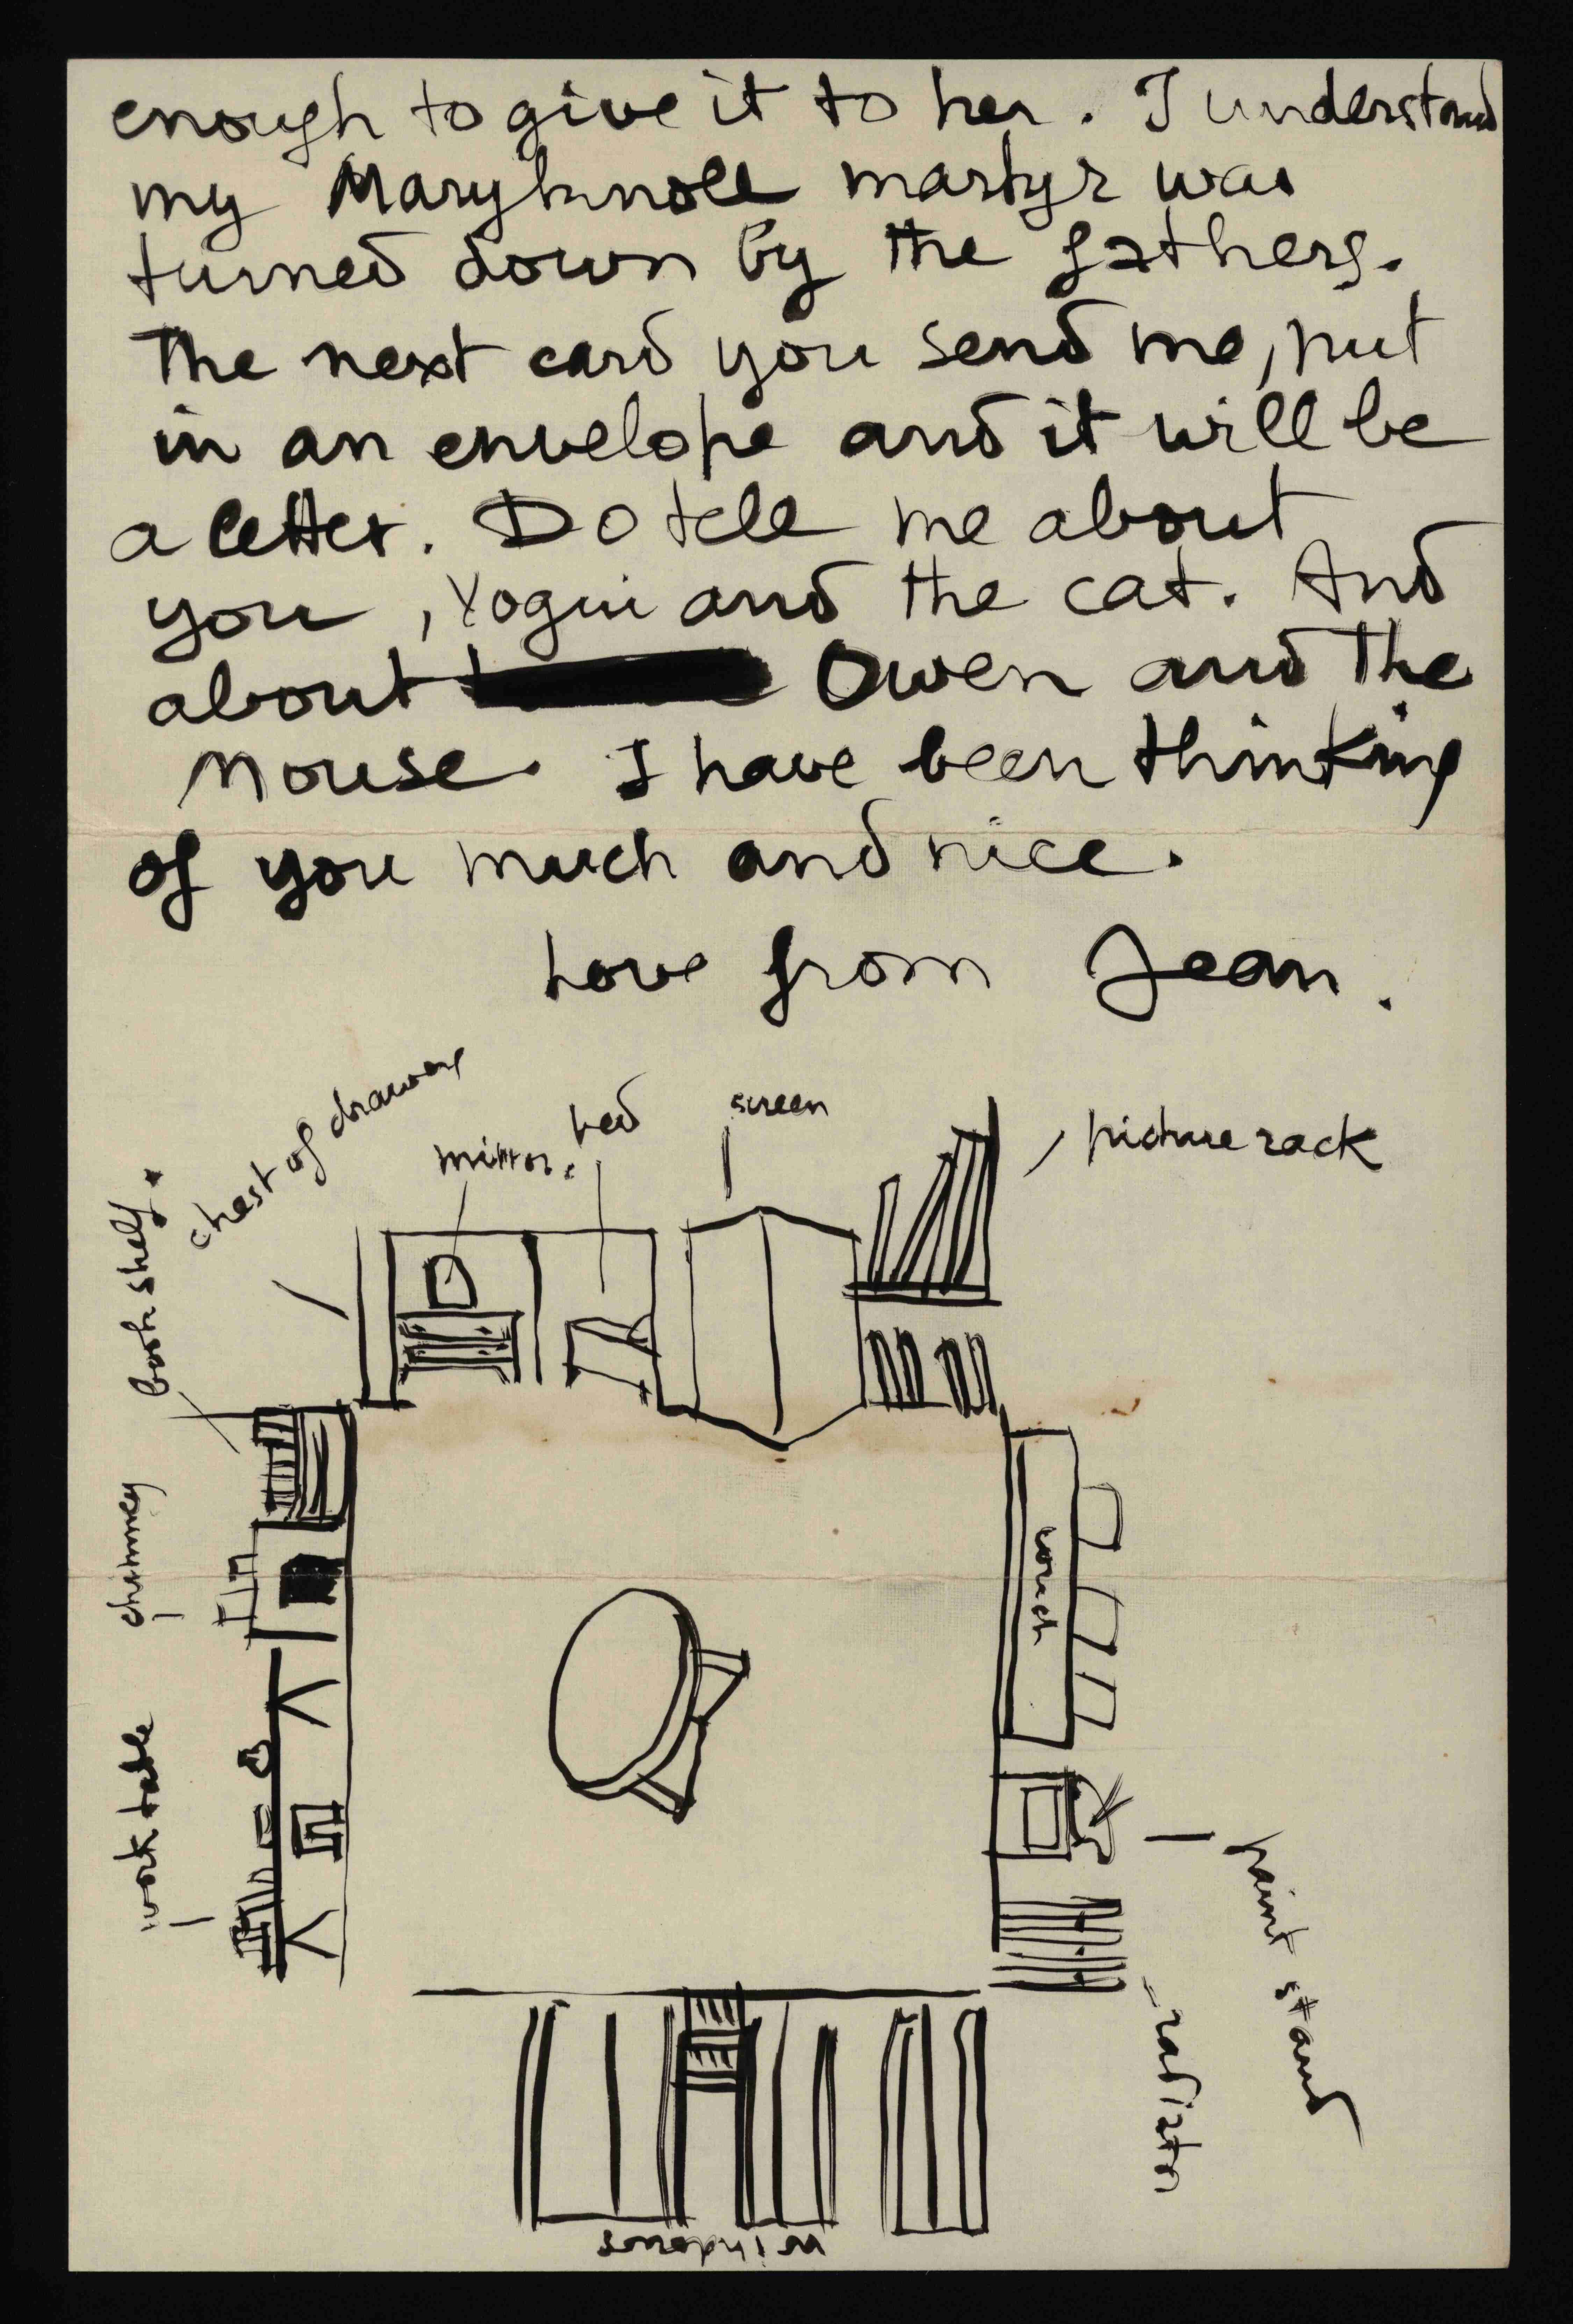 enough to give it to her. I understand
my Maryknoll martyr was
turned down by the fathers.
The next card you send me, put
in an envelope and it will be
a letter. Do tell me about
you, Yogui and the cat. And
about Owen and the
Mouse. I have been thinking
of you much and nice.
Love from Jean.
chest of drawers
mirror.
bed
screen
picture rack
book shelf.
chimney
work table
couch
paint stand
radiator
windows